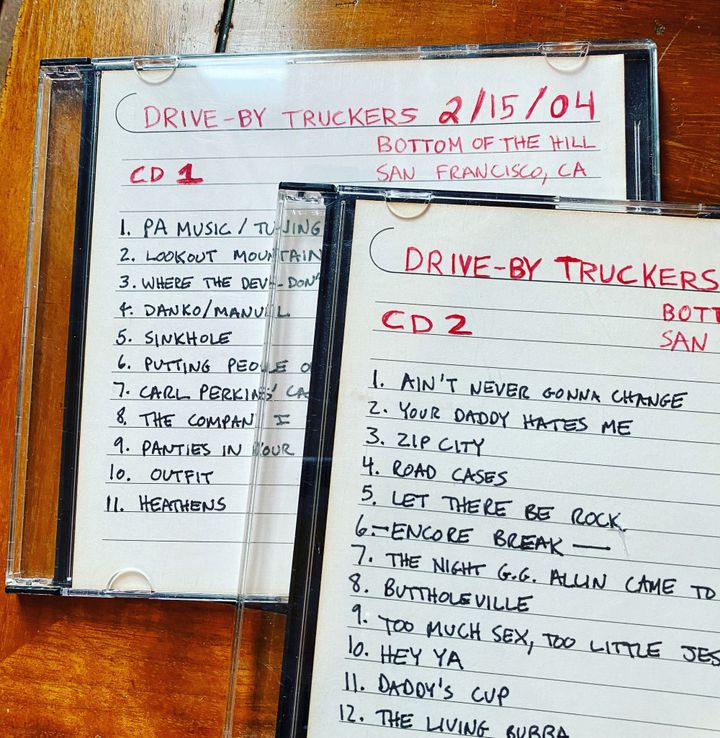 DRIVE-BY TRUCKERS 2/15/04
BOTTOM OF THE HILL
CD 1
SAN FRANCISCO, CA
1. PA MUSIC / TUNING
2. LOOKOUT MOUNTAIN
3. WHERE THE DEVIL DON'T
4. DANKO/MANUEL
5. SINKHOLE
6. PUTTING PEOPLE O
7. CARL PERKINS' CA
8. THE COMPANY I
9. PANTIES IN YOUR
10. OUTFIT
11. HEATHENS
DRIVE-BY TRUCKERS
BOTT
CD 2
SAN
1. AIN'T NEVER GONNA CHANGE
2. YOUR DADDY HATES ME
3. ZIP CITY
4. ROAD CASES
5. LET THERE BE ROCK
6. — ENCORE BREAK —
7. THE NIGHT G.G. ALLIN CAME TO
8. BUTTHOLEVILLE
9. TOO MUCH SEX, TOO LITTLE JES
10. HEY YA
11. DADDY'S CUP
12. THE LIVING BUBBA